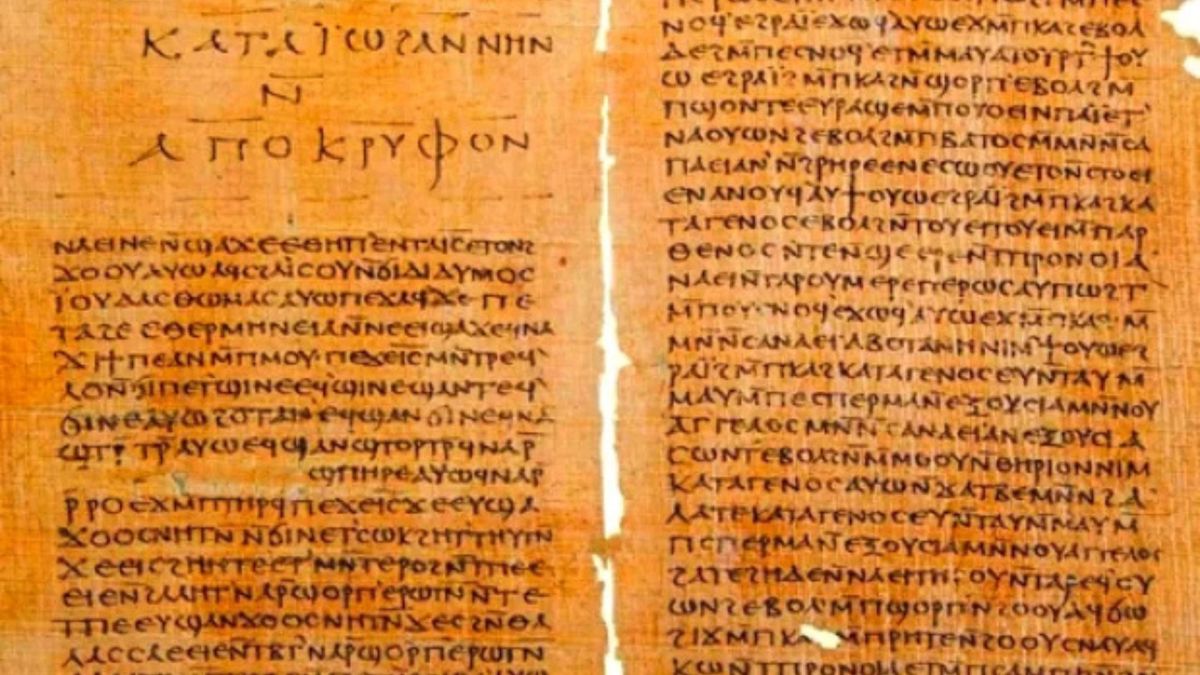 ⲕⲁⲧⲁⲓ̈ⲱϩⲁⲛⲛⲏⲛ
ⲛ̄
ⲁⲡⲟⲕⲣⲩⲫⲟⲛ
ⲛⲁⲉⲓⲛⲉⲛ̄ϣⲁϫⲉⲉⲑⲏⲡⲉⲛⲧⲁⲓ̅ⲥ̅ⲉⲧⲟⲛϩ
ϫⲟⲟⲩⲁⲩⲱⲁϥⲥϩⲁⲓ̈ⲥⲟⲩⲛ̄ϭⲓⲇⲓⲇⲩⲙⲟⲥ
ⲓ̈ⲟⲩⲇⲁⲥⲑⲱⲙⲁⲥⲁⲩⲱⲡⲉϫⲁϥϫⲉⲡⲉ
ⲧⲁϩⲉⲉⲑⲉⲣⲙⲏⲛⲉⲓⲁⲛ̄ⲛⲉⲉⲓϣⲁϫⲉϥⲛⲁ
ϫⲓϯⲡⲉⲁⲛⲙ̄ⲡⲙⲟⲩ·ⲡⲉϫⲉⲓ̅ⲥ̅ⲙⲛ̄ⲧⲣⲉϥ
ⲗⲟⲛ̄ϭⲓⲡⲉⲧϣⲓⲛⲉⲉϥϣⲓⲛⲉϣⲁⲛⲧⲉϥ
ϭⲓⲛⲉⲁⲩⲱϩⲟⲧⲁⲛⲉϥϣⲁⲛϭⲓⲛⲉϥⲛⲁ
ϣⲧⲣ̄ⲧⲣ̄ⲁⲩⲱⲉϥϣⲁⲛϣⲧⲟⲣⲧⲣ̄ϥⲛⲁⲣ̄
ϣⲡⲏⲣⲉⲁⲩⲱϥⲛⲁⲣ̄
ⲣ̄ⲣⲟⲉϫⲙ̄ⲡⲧⲏⲣϥⲡⲉϫⲉⲓ̅ⲥ̅ϫⲉⲉⲩϣⲁ
ϫⲟⲟⲥⲛⲏⲧⲛ̄ⲛ̄ϭⲓⲛⲉⲧⲥⲱⲕϩⲏⲧⲧⲏⲩⲧⲛ̄
ϫⲉⲉⲓⲥϩⲏⲏⲧⲉⲉⲧⲙⲛ̄ⲧⲉⲣⲟϩⲛ̄ⲧⲡⲉⲉ
ⲉⲓⲉⲛ̄ϩⲁⲗⲏⲧⲛⲁⲣ̄ϣⲟⲣⲡⲉⲣⲱⲧⲛ̄ⲛ̄ⲧⲉ
ⲧⲡⲉⲉⲩϣⲁⲛϫⲟⲟⲥⲛⲏⲧⲛ̄ϫⲉⲥϩⲛ̄ⲑⲁ
ⲗⲁⲥⲥⲁⲉⲉⲓⲉⲛ̄ⲧⲃ̄ⲧⲛⲁⲣ̄ϣⲟⲣⲡⲉⲣⲱⲧⲛ̄
ⲛⲟϥⲉϩⲣⲁⲓ̈ⲉϫⲱϥⲁⲩⲱⲉϫⲙ̄ⲡⲕⲁϩⲉⲃⲟⲗ
ⲇⲉϩⲙ̄ⲡⲉⲥⲛⲟϥⲉⲧⲙ̄ⲙⲁⲩⲁⲟⲩⲣⲧϯⲟⲩ
ⲱⲉϩⲣⲁⲓ̈ϩⲙ̄ⲡⲕⲁϩⲛ̄ϣⲟⲣⲡⲉⲃⲟⲗϩⲙ̄
ⲡϣⲟⲛⲧⲉⲉⲩⲣⲁϣⲉⲙ̄ⲡⲟⲩⲟⲉⲓⲛⲡⲁⲓ̈ⲉⲧ
ⲛⲁⲟⲩⲱⲛϩⲉⲃⲟⲗϩⲙ̄ⲡⲃⲁⲧⲟⲥⲙ̄ⲙⲛ̄ⲛ̄ⲥⲁ
ⲡⲁⲉⲓⲁⲛ̄ϩⲣⲏⲣⲉⲉⲛⲉⲥⲱⲟⲩⲉⲧⲟⲛ̄ⲥϯⲟⲉⲓ
ⲉⲛⲁⲛⲟⲩϥⲁⲩϯⲟⲩⲱⲉϩⲣⲁⲓ̈ϩⲙ̄ⲡⲕⲁϩⲕⲁ
ⲧⲁⲅⲉⲛⲟⲥⲉⲃⲟⲗϩⲛ̄ⲧⲟⲩⲉⲓⲧⲟⲩⲉⲓⲙ̄ⲡⲁⲣ
ⲑⲉⲛⲟⲥⲛ̄ⲛ̄ϣⲉⲉⲣⲉⲛ̄ⲧⲡⲣⲟⲛⲟⲓⲁ
ⲛⲁⲉⲓⲛ̄ⲧⲁⲣⲟⲩⲙⲉⲣⲉⲡⲉⲣⲱⲥⲁⲩⲡⲱϩⲧ
ⲙ̄ⲡⲟⲩⲥⲛⲟϥⲉϫⲱϥⲁⲩⲱⲉϫⲙ̄ⲡⲕⲁϩⲙ̄
ⲙⲛ̄ⲛ̄ⲥⲁⲛⲁⲉⲓⲁⲃⲟⲧⲁⲛⲏⲛⲓⲙϯⲟⲩⲱⲉϩ
ⲣⲁⲓ̈ϩⲙ̄ⲡⲕⲁϩⲕⲁⲧⲁⲅⲉⲛⲟⲥⲉⲩⲛ̄ⲧⲁⲩⲙ̄
ⲙⲁⲩⲙ̄ⲡⲉⲥⲡⲉⲣⲙⲁⲛ̄ⲉⲝⲟⲩⲥⲓⲁⲙⲛ̄ⲛⲟⲩ
ⲁⲅⲅⲉⲗⲟⲥⲙⲛ̄ⲛ̄ⲥⲁⲛⲁⲉⲓⲁⲛⲉⲝⲟⲩⲥⲓⲁ
ⲥⲱⲛⲧⲉⲃⲟⲗϩⲛ̄ⲙ̄ⲙⲟⲟⲩⲛ̄ⲑⲏⲣⲓⲟⲛⲛⲓⲙ
ⲕⲁⲧⲁⲅⲉⲛⲟⲥⲁⲩⲱⲛ̄ϫⲁⲧⲃⲉⲙⲛ̄ⲛ̄ϩⲁ
ⲗⲁⲧⲉⲕⲁⲧⲁⲅⲉⲛⲟⲥⲉⲩⲛ̄ⲧⲁⲩⲙ̄ⲙⲁⲩⲙ̄
ⲡⲥⲡⲉⲣⲙⲁⲛ̄ⲉⲝⲟⲩⲥⲓⲁⲙⲛ̄ⲛⲟⲩⲁⲅⲅⲉⲗⲟⲥ
ϩⲁⲧⲉϩⲏⲇⲉⲛ̄ⲛⲁⲉⲓⲧⲏⲣⲟⲩⲛ̄ⲧⲁⲣⲉϥⲟⲩ
ⲱⲛϩⲉⲃⲟⲗⲙ̄ⲡϣⲟⲣⲡⲛ̄ϩⲟⲟⲩⲁϥϭⲱ
ϩⲓϫⲙ̄ⲡⲕⲁϩⲙ̄ⲡⲣⲏⲧⲉⲛ̄ϩⲟⲟⲩⲥⲛⲁⲩⲁϥ